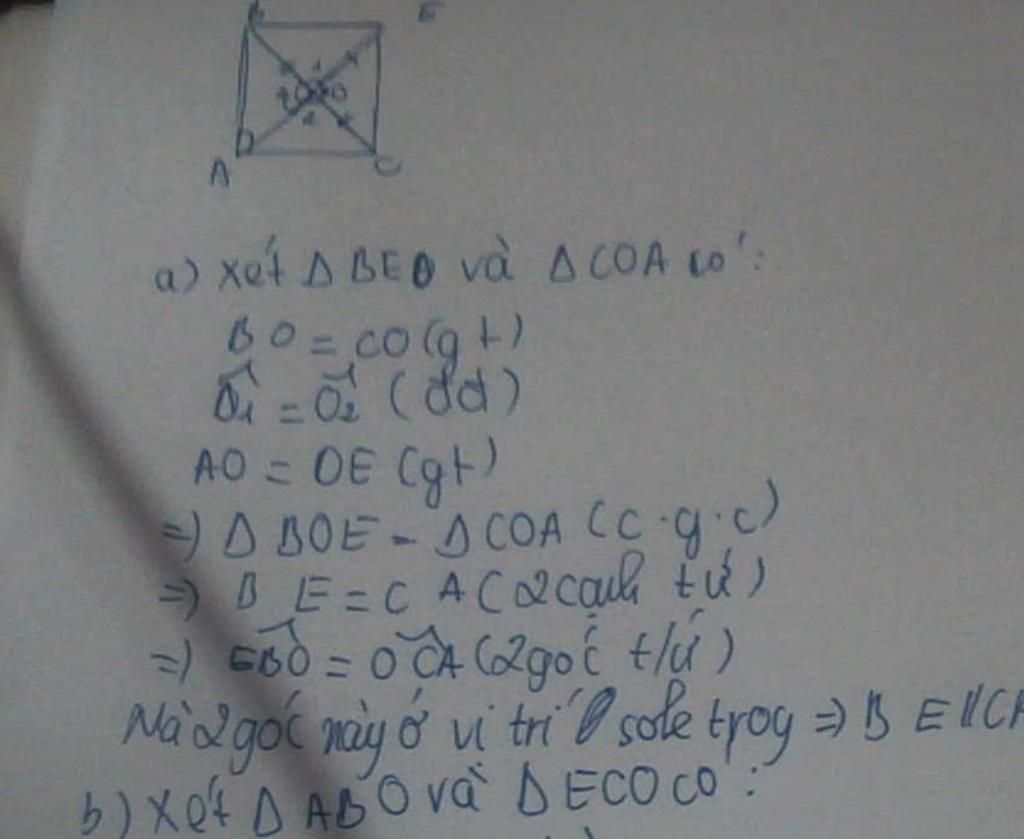 B E
1
2
A C
a) Xét Δ BEO và Δ COA có :
BO = CO (gt)
Ô1 = Ô2 (đđ)
AO = OE (gt)
=) Δ BOE = Δ COA (c.g.c)
=) B E = C A (2 cạnh t ứ)
=) EBO = OCA (2 góc t/ứ)
Mà 2 góc này ở vị trí sole trog => B E // CA
b) Xét Δ ABO và Δ ECO có :